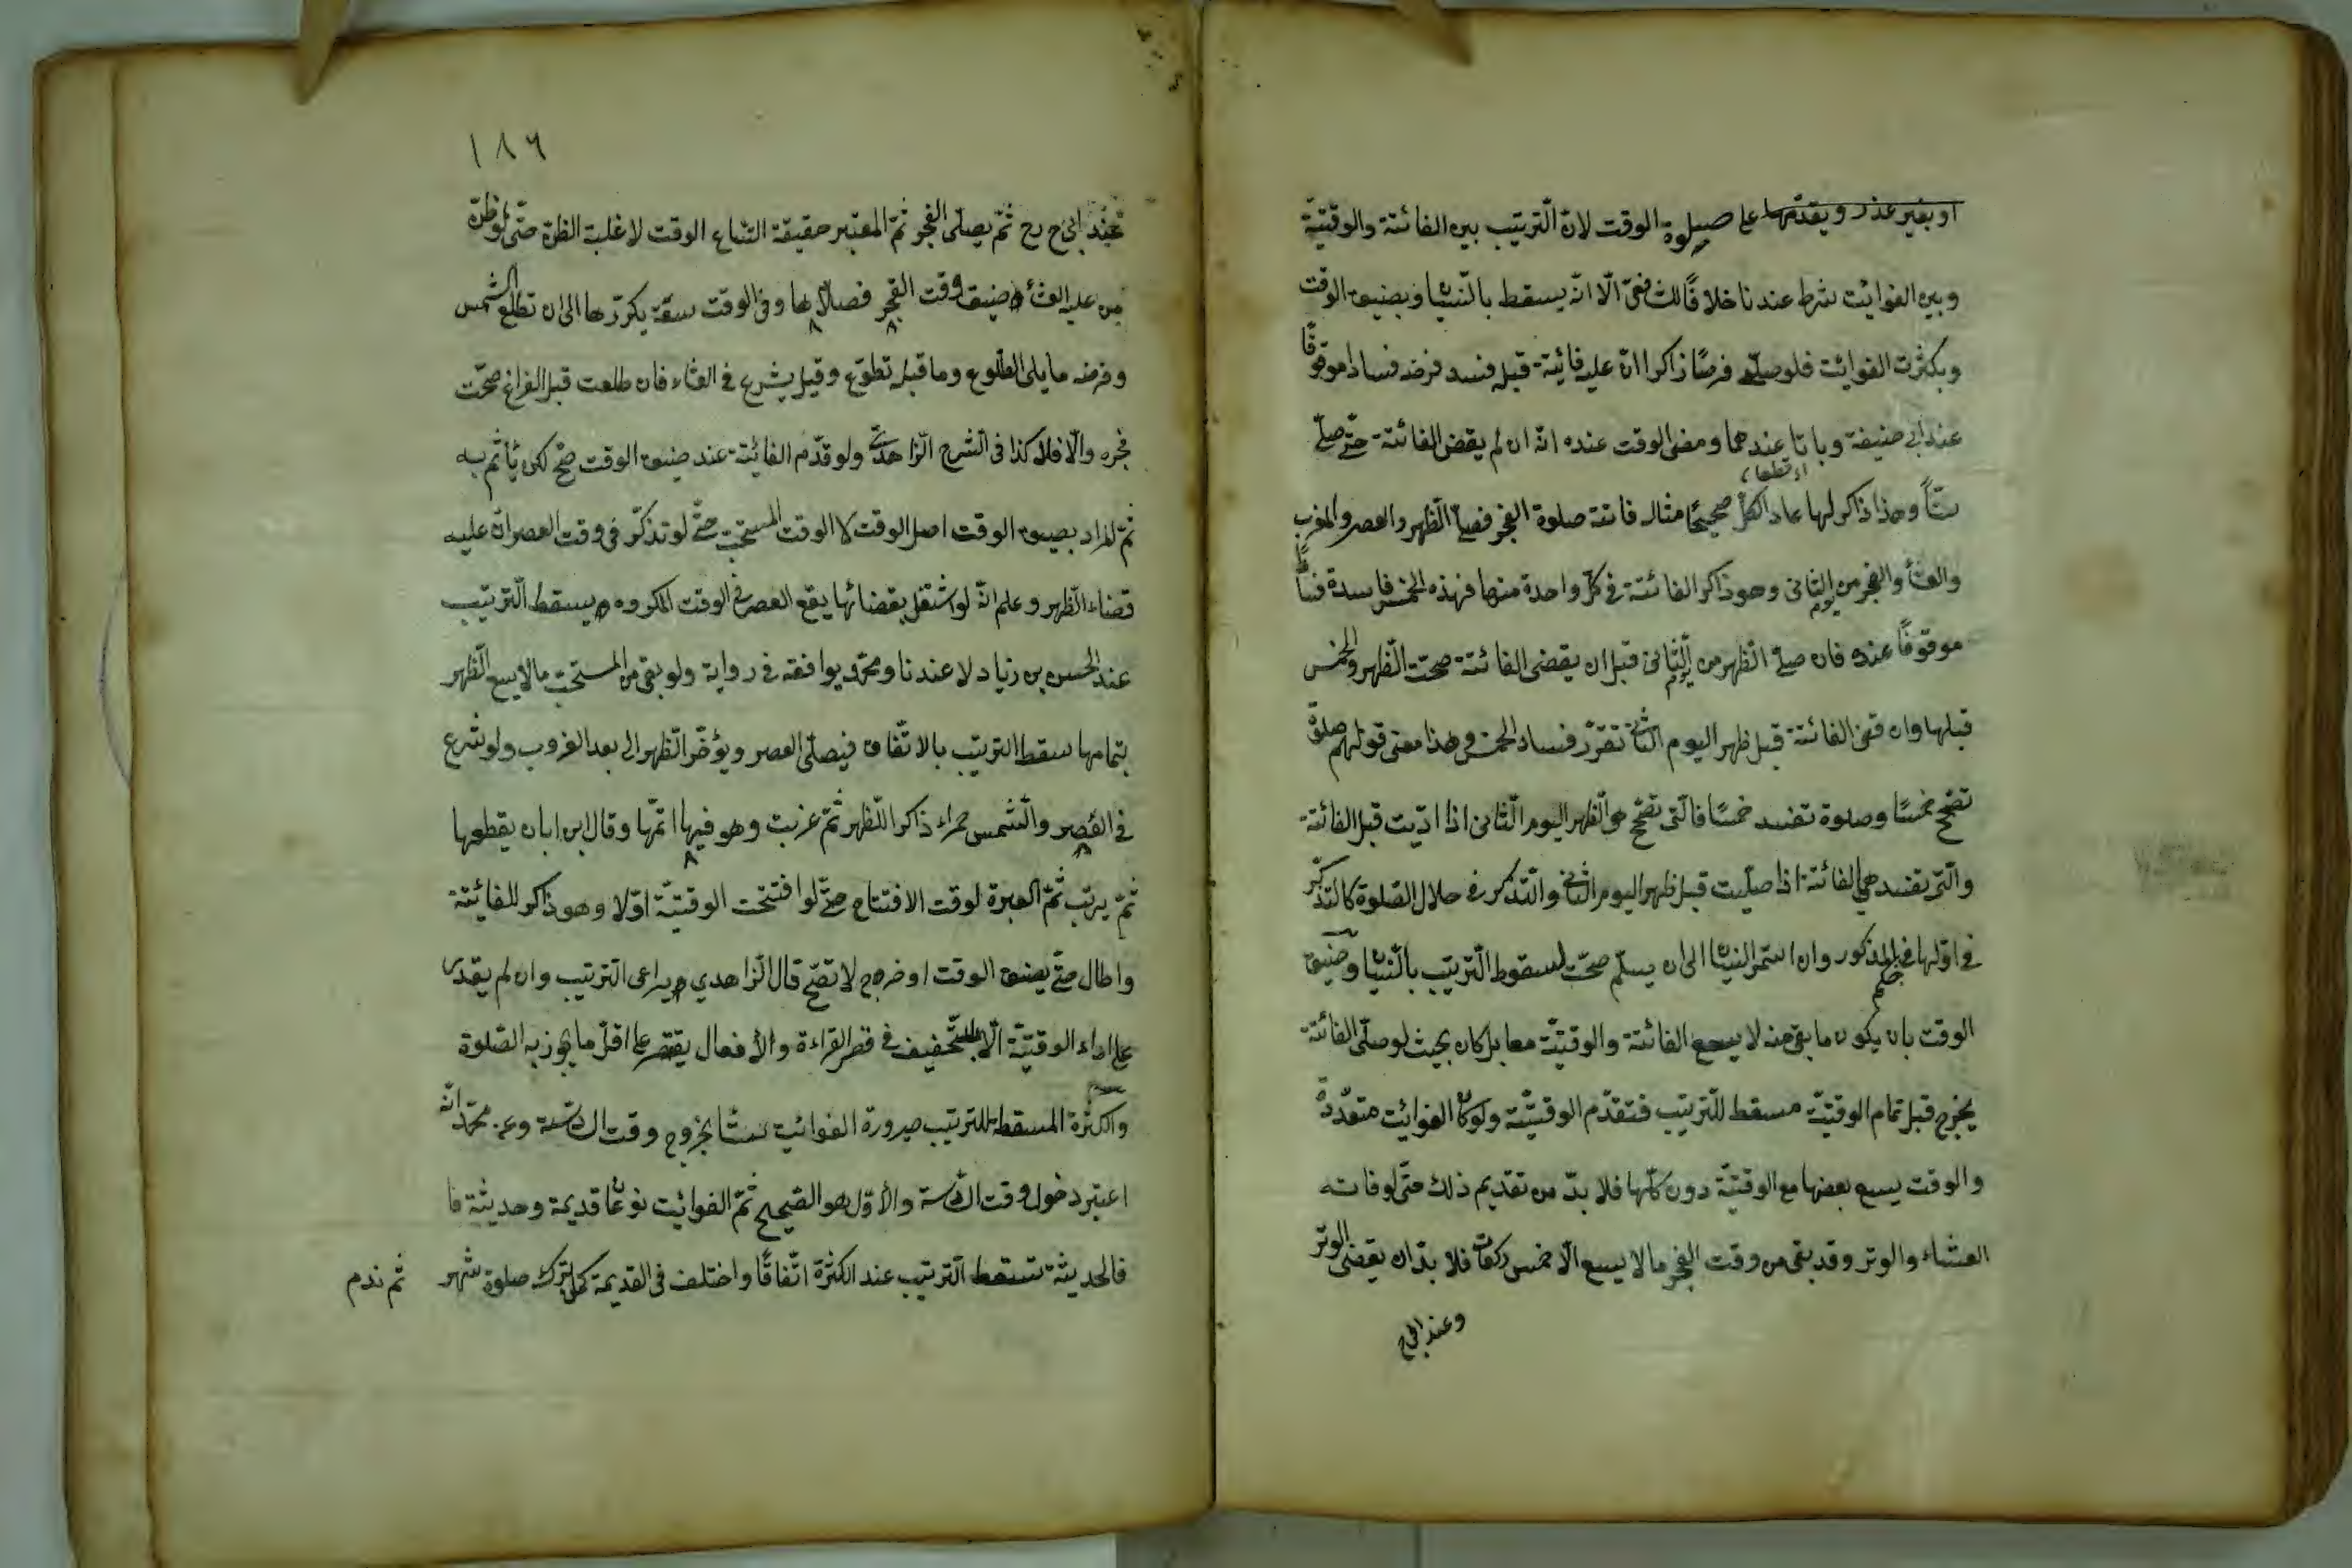 او بغير عذر ويقدّمها على صلوة الوقت لانّ التّرتيب بين الفائتة والوقتيّة
وبين الفوائت شرط عندنا خلافًا للشافعى الّا انّه يسقط بالنّسيان وبضيق الوقت
وبكثرت الفوائت فلو صلّى فرضًا ذاكرا انّ عليه فائتة قبله فسد فرضه فسادا موقوفًا
عند ابى حنيفة وباتا عندهما ومعنى الوقت عنده انّه ان لم يقض الفائتة حتّى صلّى
ستّاً وهذا ذاكر لها عاد الكلّ صحيحًا مثاله فاتته صلوة الفجر فصلّى الظّهر والعصر والمغرب
والعشاء والفجر من اليوم الثّانى وهو ذاكر الفائتة فى كلّ واحدة منها فهذه الخمس فاسدة فسادًا
موقوفًا عنده فان صلّى الظّهر من اليوم الثّانى قبل ان يقضى الفائتة صحّت الظّهر والخمس
قبلها وان قضى الفائتة قبل ظهر اليوم الثانى تقرّر فساد الخمس وهذا معنى قولهم صلوة
تصحّح خمسًا وصلوة تفسد خمسًا فالّتى تصحّح هى الظهر اليوم الثّانى اذا ادّيت قبل الفائتة
والّتى تفسد هى الفائتة اذا صلّيت قبل ظهر اليوم الثانى والتّذكر فى خلال الصّلوة كالتذكّر
فى اوّلها فى الحكم المذكور وان استمر النسيان الى ان يسلّم صحّت لسقوط التّرتيب بالنّسيان وضيق
الوقت بان يكون ما بقى منه لا يسع الفائتة والوقتيّة معا بل كان بحيث لو صلّى الفائتة
يخرج قبل تمام الوقتيّة مسقط للتّرتيب فتقدّم الوقتيّة ولو كان الفوائت متعدّدة
والوقت يسع بعضها مع الوقتيّة دون كلّها فلا بدّ من تقديم ذلك حتّى لو فاته
العشاء والوتر وقد بقى من وقت الفجر ما لا يسع الّا خمس ركعات فلا بدّ ان يقضى الوتر
وعند ابى ح
١٨٦
عند ابى ح رح ثمّ يصلّى الفجر ثمّ المعتبر حقيقة اتّساع الوقت لا غلبة الظنّ حتّى لو ظنّ
من عليه العشاء ضيق وقت الفجر فصلّاها وفى الوقت سعة يكرّرها الى ان تطلع الشمس
وفرضه ما يلى الطّلوع وما قبله تطوّع وقيل يشرع فى العشاء فان طلعت قبل الفراغ صحّت
فجره والّا فلا كذا فى الشرح الزّاهدىّ ولو قدّم الفائتة عند ضيق الوقت صحّ لكن يأثم به
ثمّ المراد بضيق الوقت اصل الوقت لا الوقت المستحبّ حتّى لو تذكّر فى وقت العصر انّ عليه
قضاء الظّهر وعلم انّه لو اشتغل بقضائها يقع العصر فى الوقت المكروه يسقط التّرتيب
عند الحسن بن زياد لا عندنا ومحمّد يوافقه فى رواية ولو بقى من المستحبّ ما لا يسع الظّهر
بتمامها سقط الترتيب بالاتّفاق فيصلّى العصر ويؤخّر الظهر الى بعد الغروب ولو شرع
فى العصر والشّمس حمراء ذاكرا للظهر ثمّ غربت وهو فيها اتمّها وقال ابن ابان يقطعها
ثمّ يرتب ثمّ العبرة لوقت الافتتاح حتّى لو افتتحت الوقتيّة اوّلا وهو ذاكر للفائتة
واطال حتّى يضيق الوقت او خرج لا تصّح قال الزاهدي ويراعى التّرتيب وان لم يقدر
على اداء الوقتيّة الّا بالتّخفيف فى قصر القراءة والأفعال يقتصر على اقلّ ما يجوز به الصّلوة
والكثرة المسقطة للترتيب صيرورة الفوائت ستّا بخروج وقت السّادسة وعن محمّد انّه
اعتبر دخول وقت السّادسة والأوّل هو الصّحيح ثمّ الفوائت نوعان قديمة وحديثة فا
فالحديثة تسقط التّرتيب عند الكثرة اتّفاقًا واختلف فى القديمة كمن ترك صلوة شهر
ثم ندم